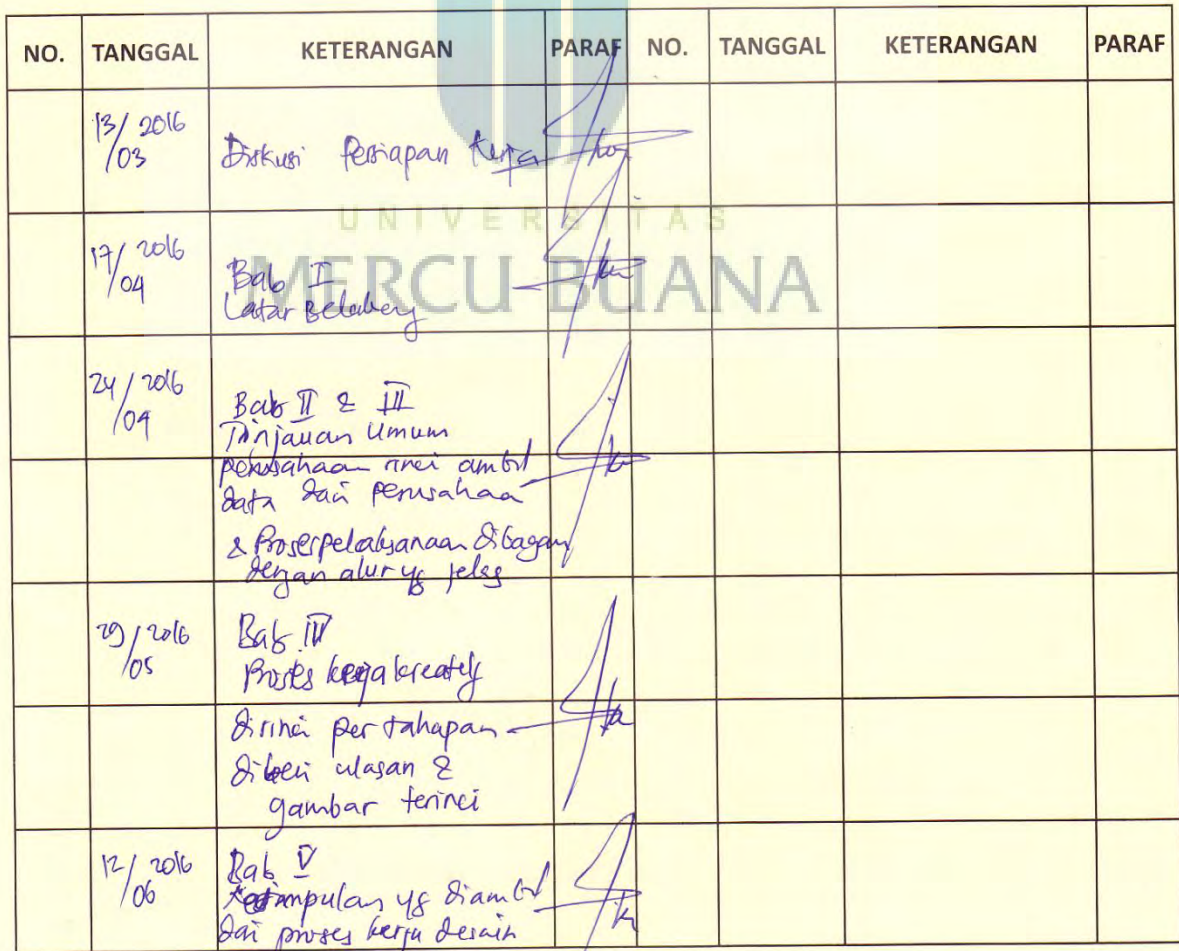 NO. TANGGAL KETERANGAN PARAF NO. TANGGAL KETERANGAN PARAF
13/03 2016 Diskusi Persiapan Kerja
UNIVERSITAS
MERCU BUANA
17/04 2016 Bab I
Latar Belakang
24/04 2016 Bab II & III
Tinjauan Umum
perusahaan rinci ambil
data dari perusahaa
& Proses pelaksanaan dibagan
dengan alur yg jelas
29/05 2016 Bab IV
Proses kerja kreatif
dirinci per tahapan
diberi ulasan &
gambar terinci
12/06 2016 Bab V
Kesimpulan yg diambil
dari proses kerja desain